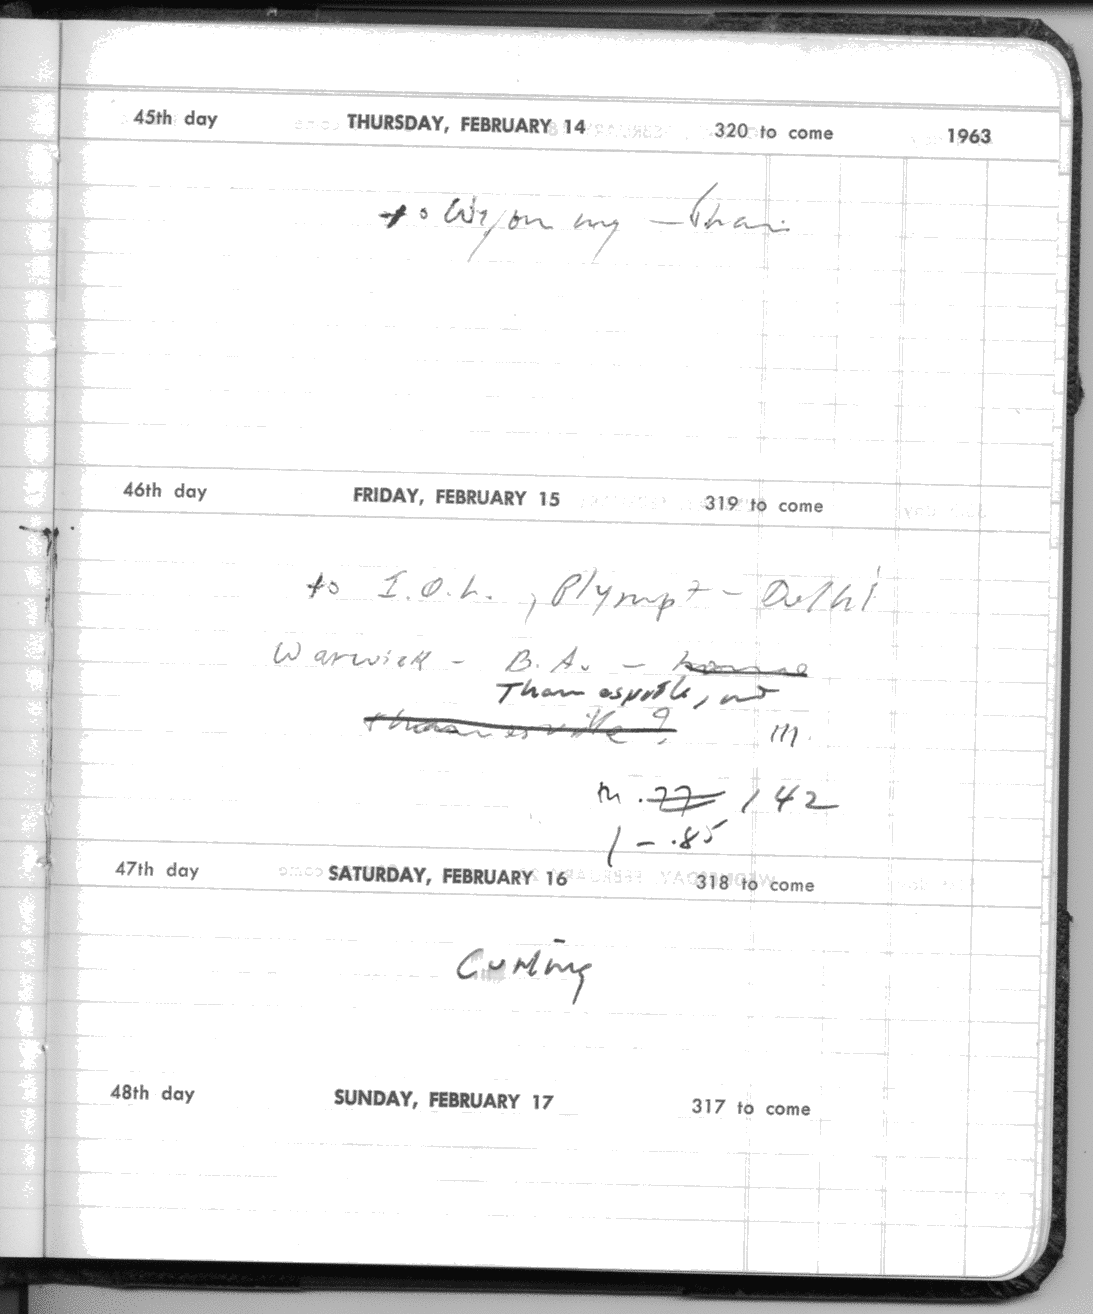 45th day THURSDAY, FEBRUARY 14 320 to come 1963
to Wyoming -
46th day FRIDAY, FEBRUARY 15 319 to come
to I.O.L. , Plympt - Delhi
Warwick - B.A. - home
Thamesville,
thamesville ?
m.
m .77 142
1 - .85
47th day SATURDAY, FEBRUARY 16 318 to come
Curling
48th day SUNDAY, FEBRUARY 17 317 to come